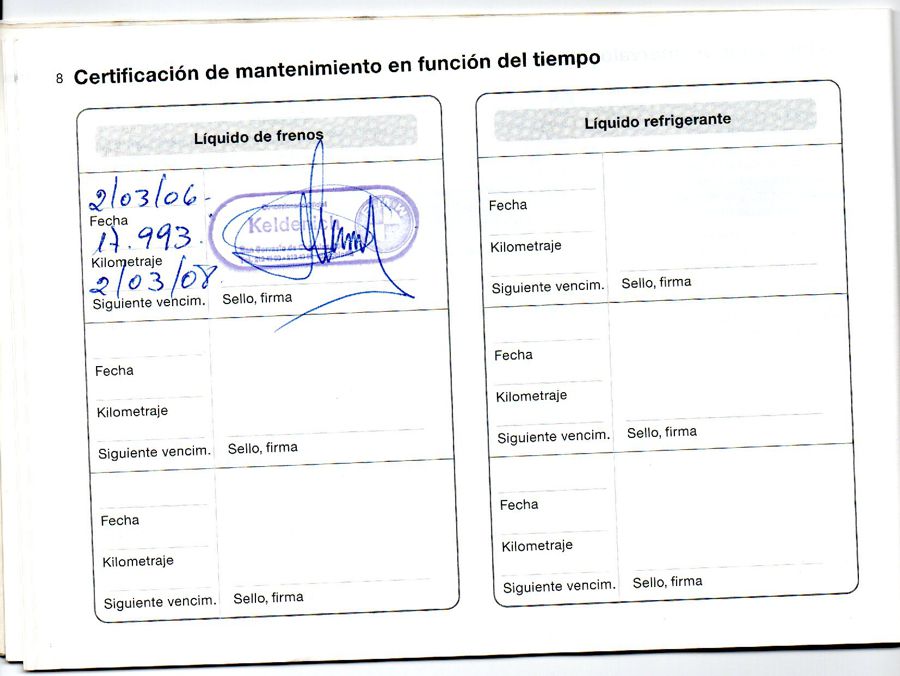 8 Certificación de mantenimiento en función del tiempo
Líquido de frenos
2/03/06
Fecha
17.993
Kilometraje
2/03/08
Siguiente vencim.
Keldenich
Sello, firma
Fecha
Kilometraje
Siguiente vencim.
Sello, firma
Fecha
Kilometraje
Siguiente vencim.
Sello, firma
Líquido refrigerante
Fecha
Kilometraje
Siguiente vencim.
Sello, firma
Fecha
Kilometraje
Siguiente vencim.
Sello, firma
Fecha
Kilometraje
Siguiente vencim.
Sello, firma